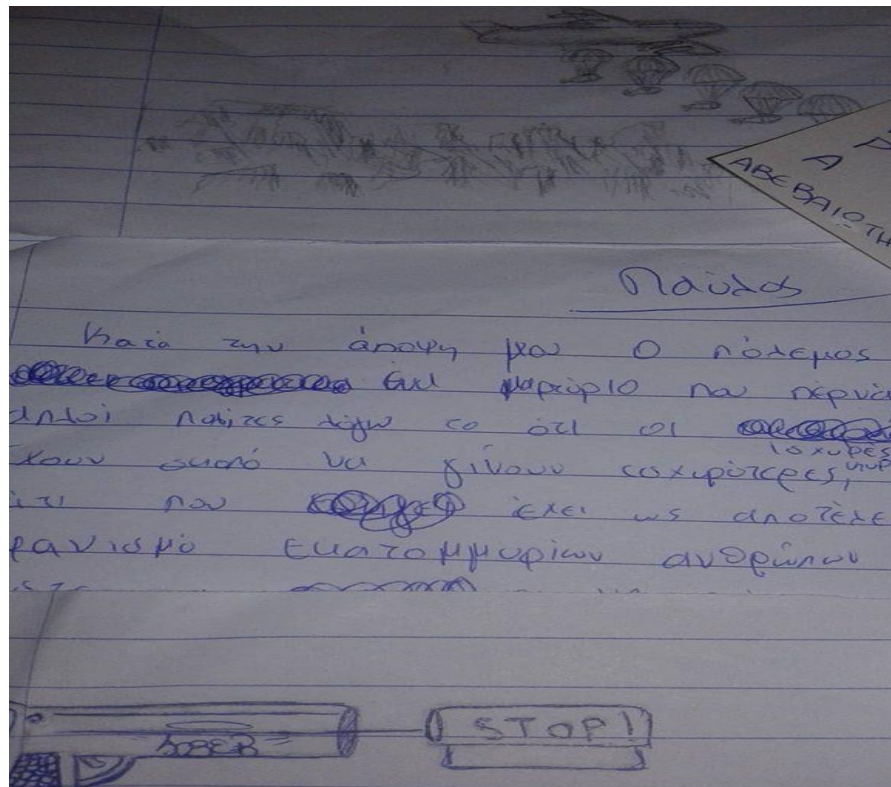 Ρ
Α
ΑΒΕΒΑΙΟΤΗ
Παύλος
Κατά την άποψη μου ο πόλεμος
μαρτύριο που περνά
πολίτες λόγω το ότι οι
ισχυρές
έχουν σκοπό να γίνουν ισχυρότερες,
που έχει ως αποτέλε
ρανισμό εκατομμυρίων ανθρώπων
SOBER
STOP!